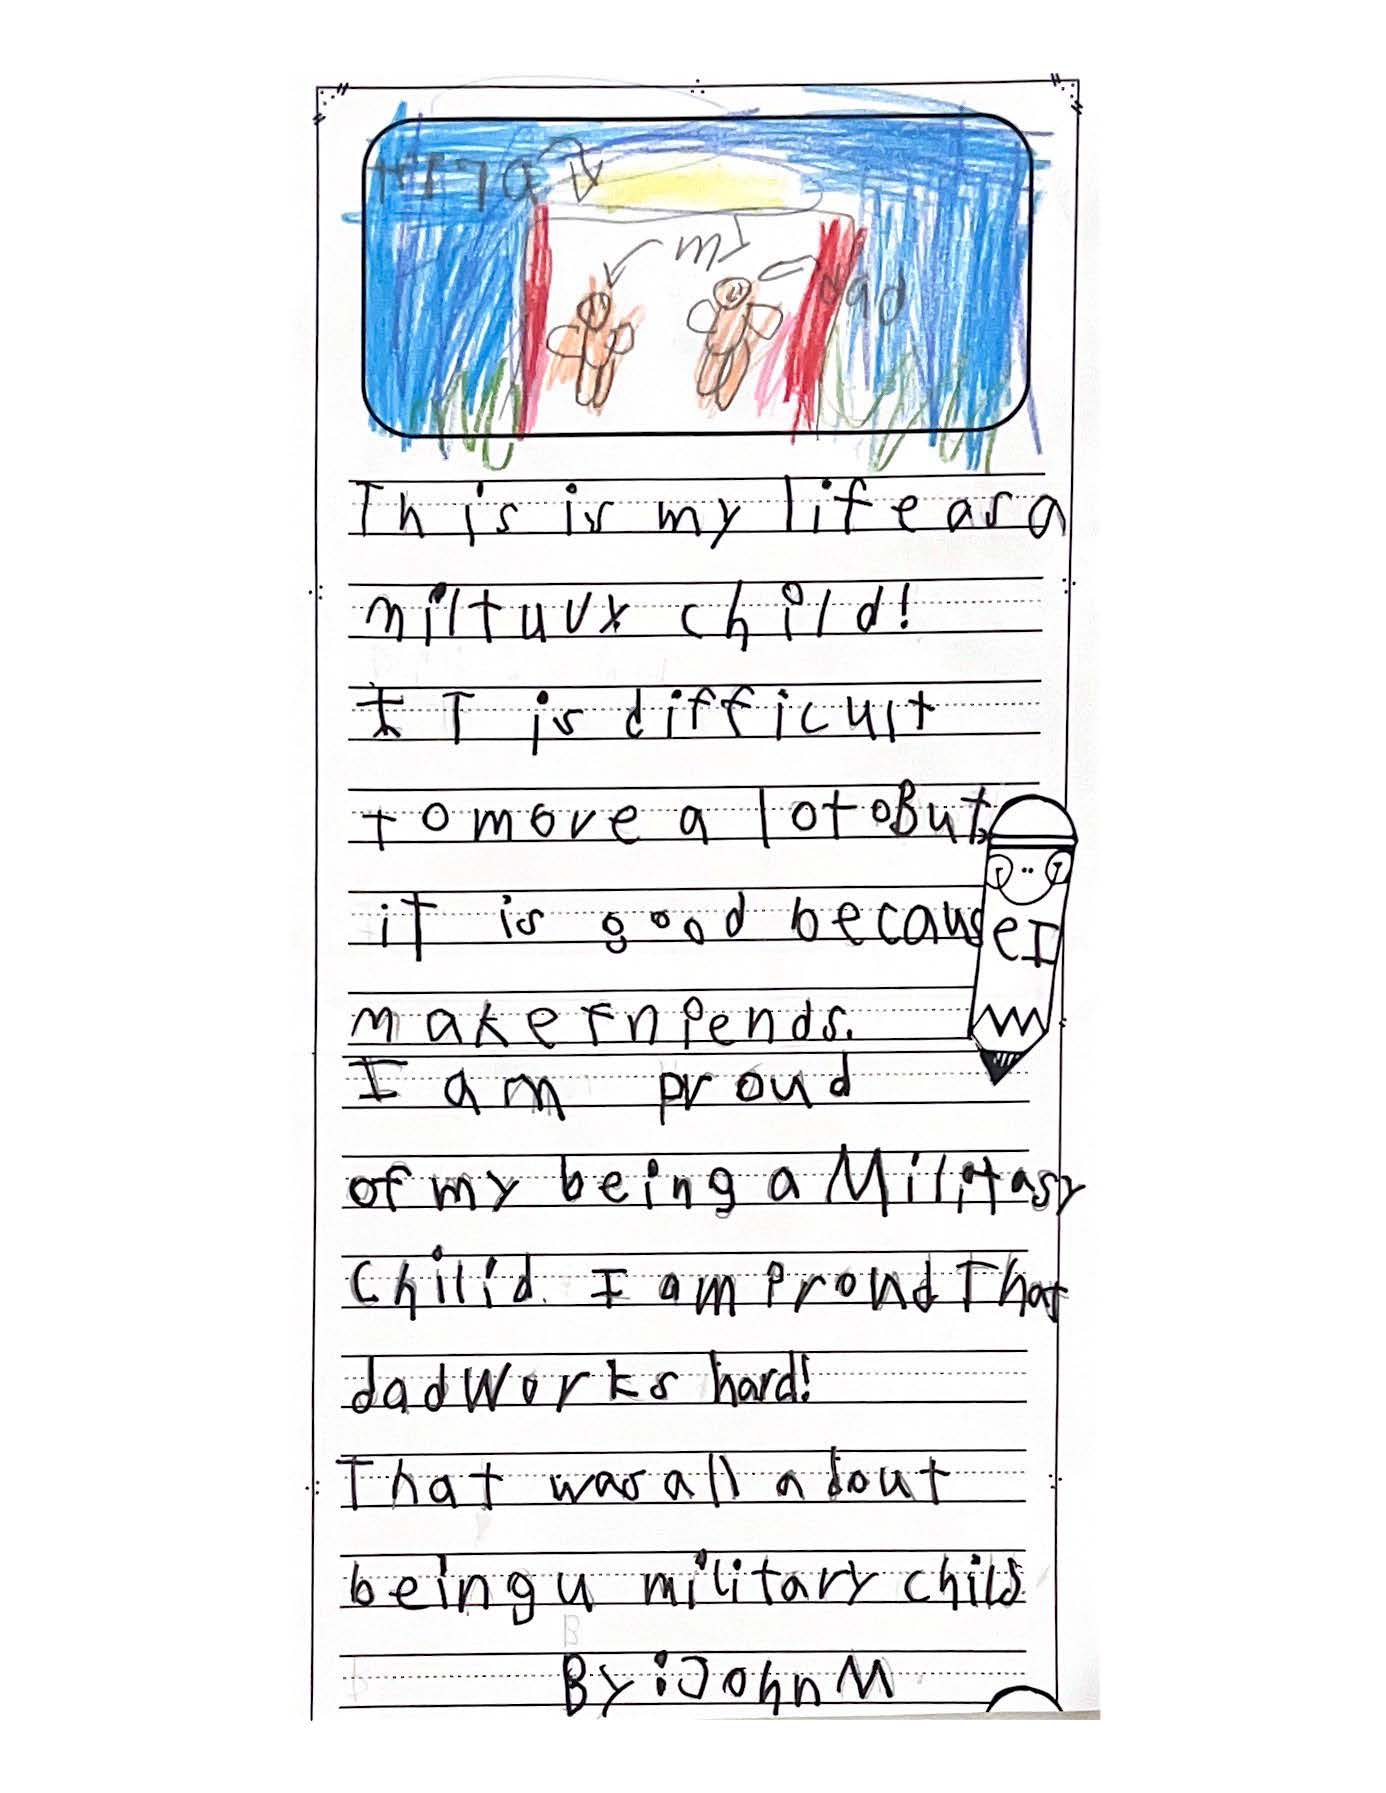 mI
dad
This is my life as a
miltury child!
IT is difficult
to move a lot. But
it is good because I
make frniends.
I am proud
of my being a Militasy
Chilid. I am Proud That
dad Works hard!
That was all about
being u military child
By: John M